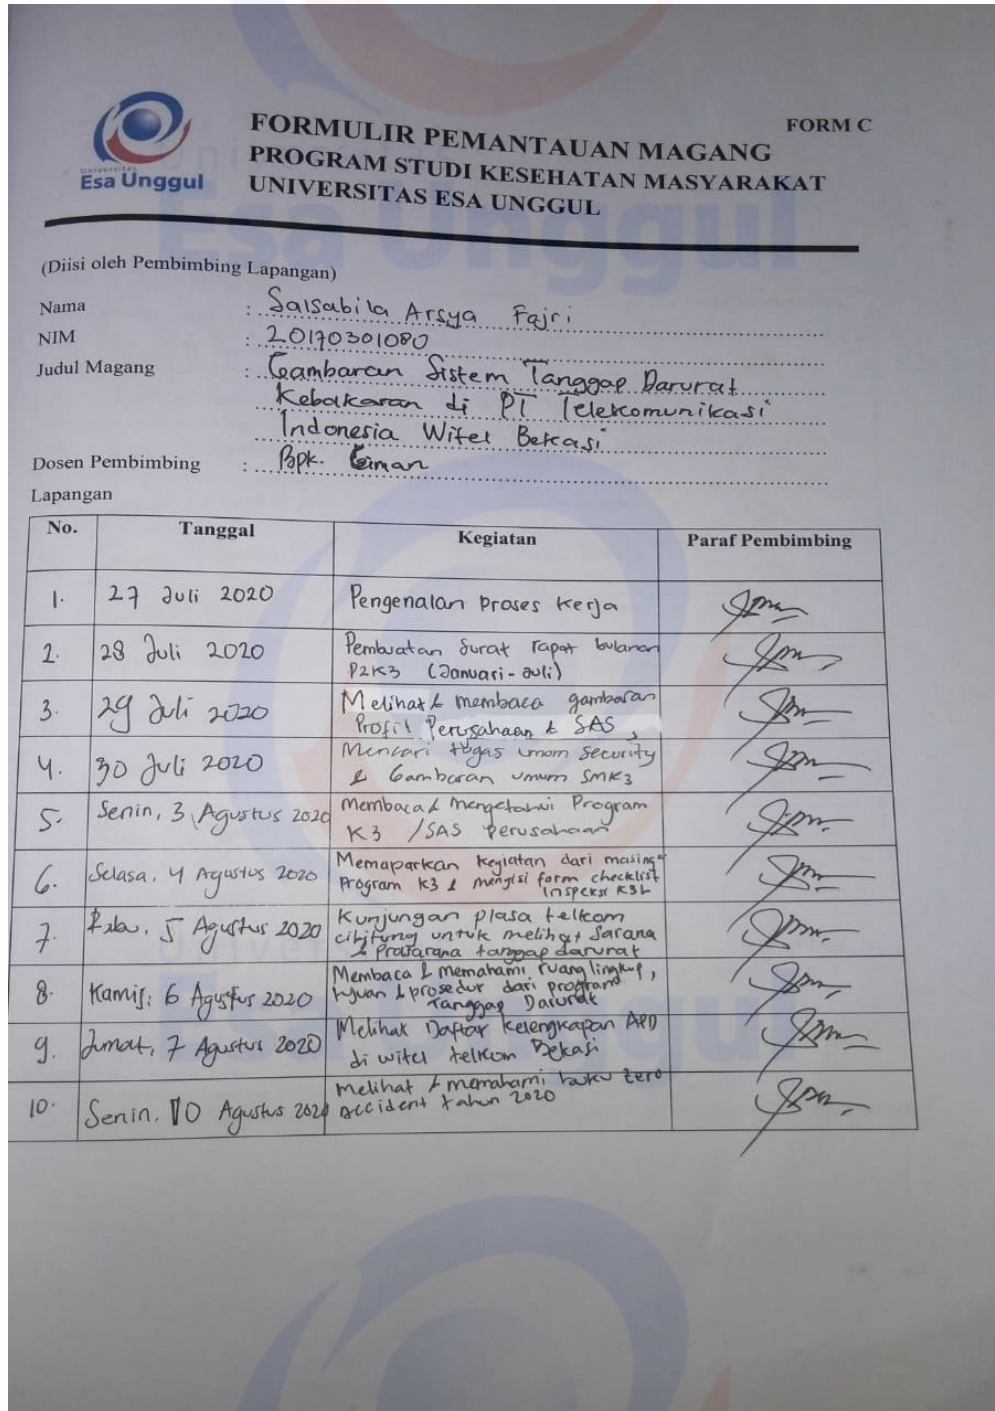 FORM C
FORMULIR PEMANTAUAN MAGANG
PROGRAM STUDI KESEHATAN MASYARAKAT
UNIVERSITAS ESA UNGGUL
Universitas
Esa Unggul
(Diisi oleh Pembimbing Lapangan)
Nama : Salsabila Arsya Fajri
NIM : 20170301080
Judul Magang : Gambaran Sistem Tanggap Darurat
Kebakaran di PT Telekomunikasi
Indonesia Witel Bekasi
Dosen Pembimbing : Bpk. Giman
Lapangan
No. Tanggal Kegiatan Paraf Pembimbing
1. 27 Juli 2020 Pengenalan Proses Kerja
2. 28 Juli 2020 Pembuatan Surat rapat bulanan
P2K3 (Januari - Juli)
3. 29 Juli 2020 Melihat & membaca gambaran
Profil Perusahaan & SAS
4. 30 Juli 2020 Mencari tugas umum Security
& Gambaran umum SMK3
5. Senin, 3 Agustus 2020 Membaca & Mengetahui Program
K3 / SAS Perusahaan
6. Selasa, 4 Agustus 2020 Memaparkan kegiatan dari masing"
Program K3 & mengisi form checklist
Inspeksi K3L
7. Rabu, 5 Agustus 2020 Kunjungan plasa telkom
cibitung untuk melihat Sarana
& Prasarana tanggap darurat
8. Kamis, 6 Agustus 2020 Membaca & Memahami ruang lingkup,
tujuan & prosedur dari program
Tanggap Darurat
9. Jumat, 7 Agustus 2020 Melihat Daftar Kelengkapan APD
di witel telkom Bekasi
10. Senin, 10 Agustus 2020 Melihat & memahami buku zero
accident tahun 2020